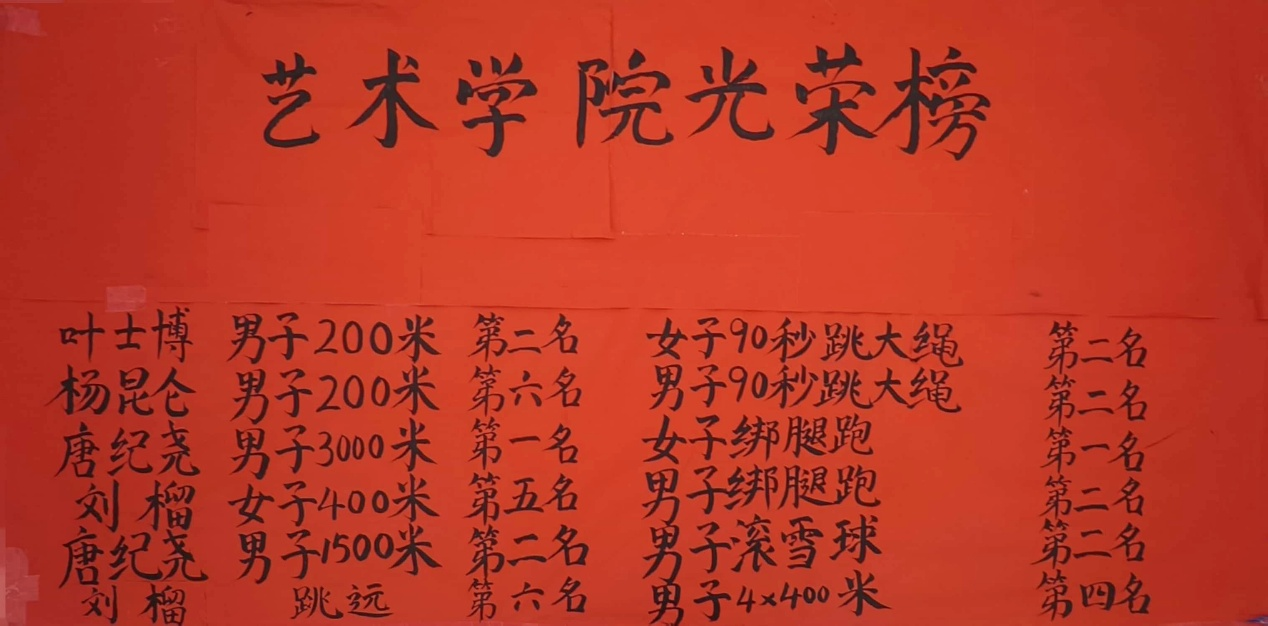 艺术学院光荣榜
叶士博 男子200米 第二名 女子90秒跳大绳 第二名
杨昆仑 男子200米 第六名 男子90秒跳大绳 第二名
唐纪尧 男子3000米 第一名 女子绑腿跑 第一名
刘榴 女子400米 第五名 男子绑腿跑 第二名
唐纪尧 男子1500米 第二名 男子滚雪球 第二名
刘榴 跳远 第六名 男子4×400米 第四名